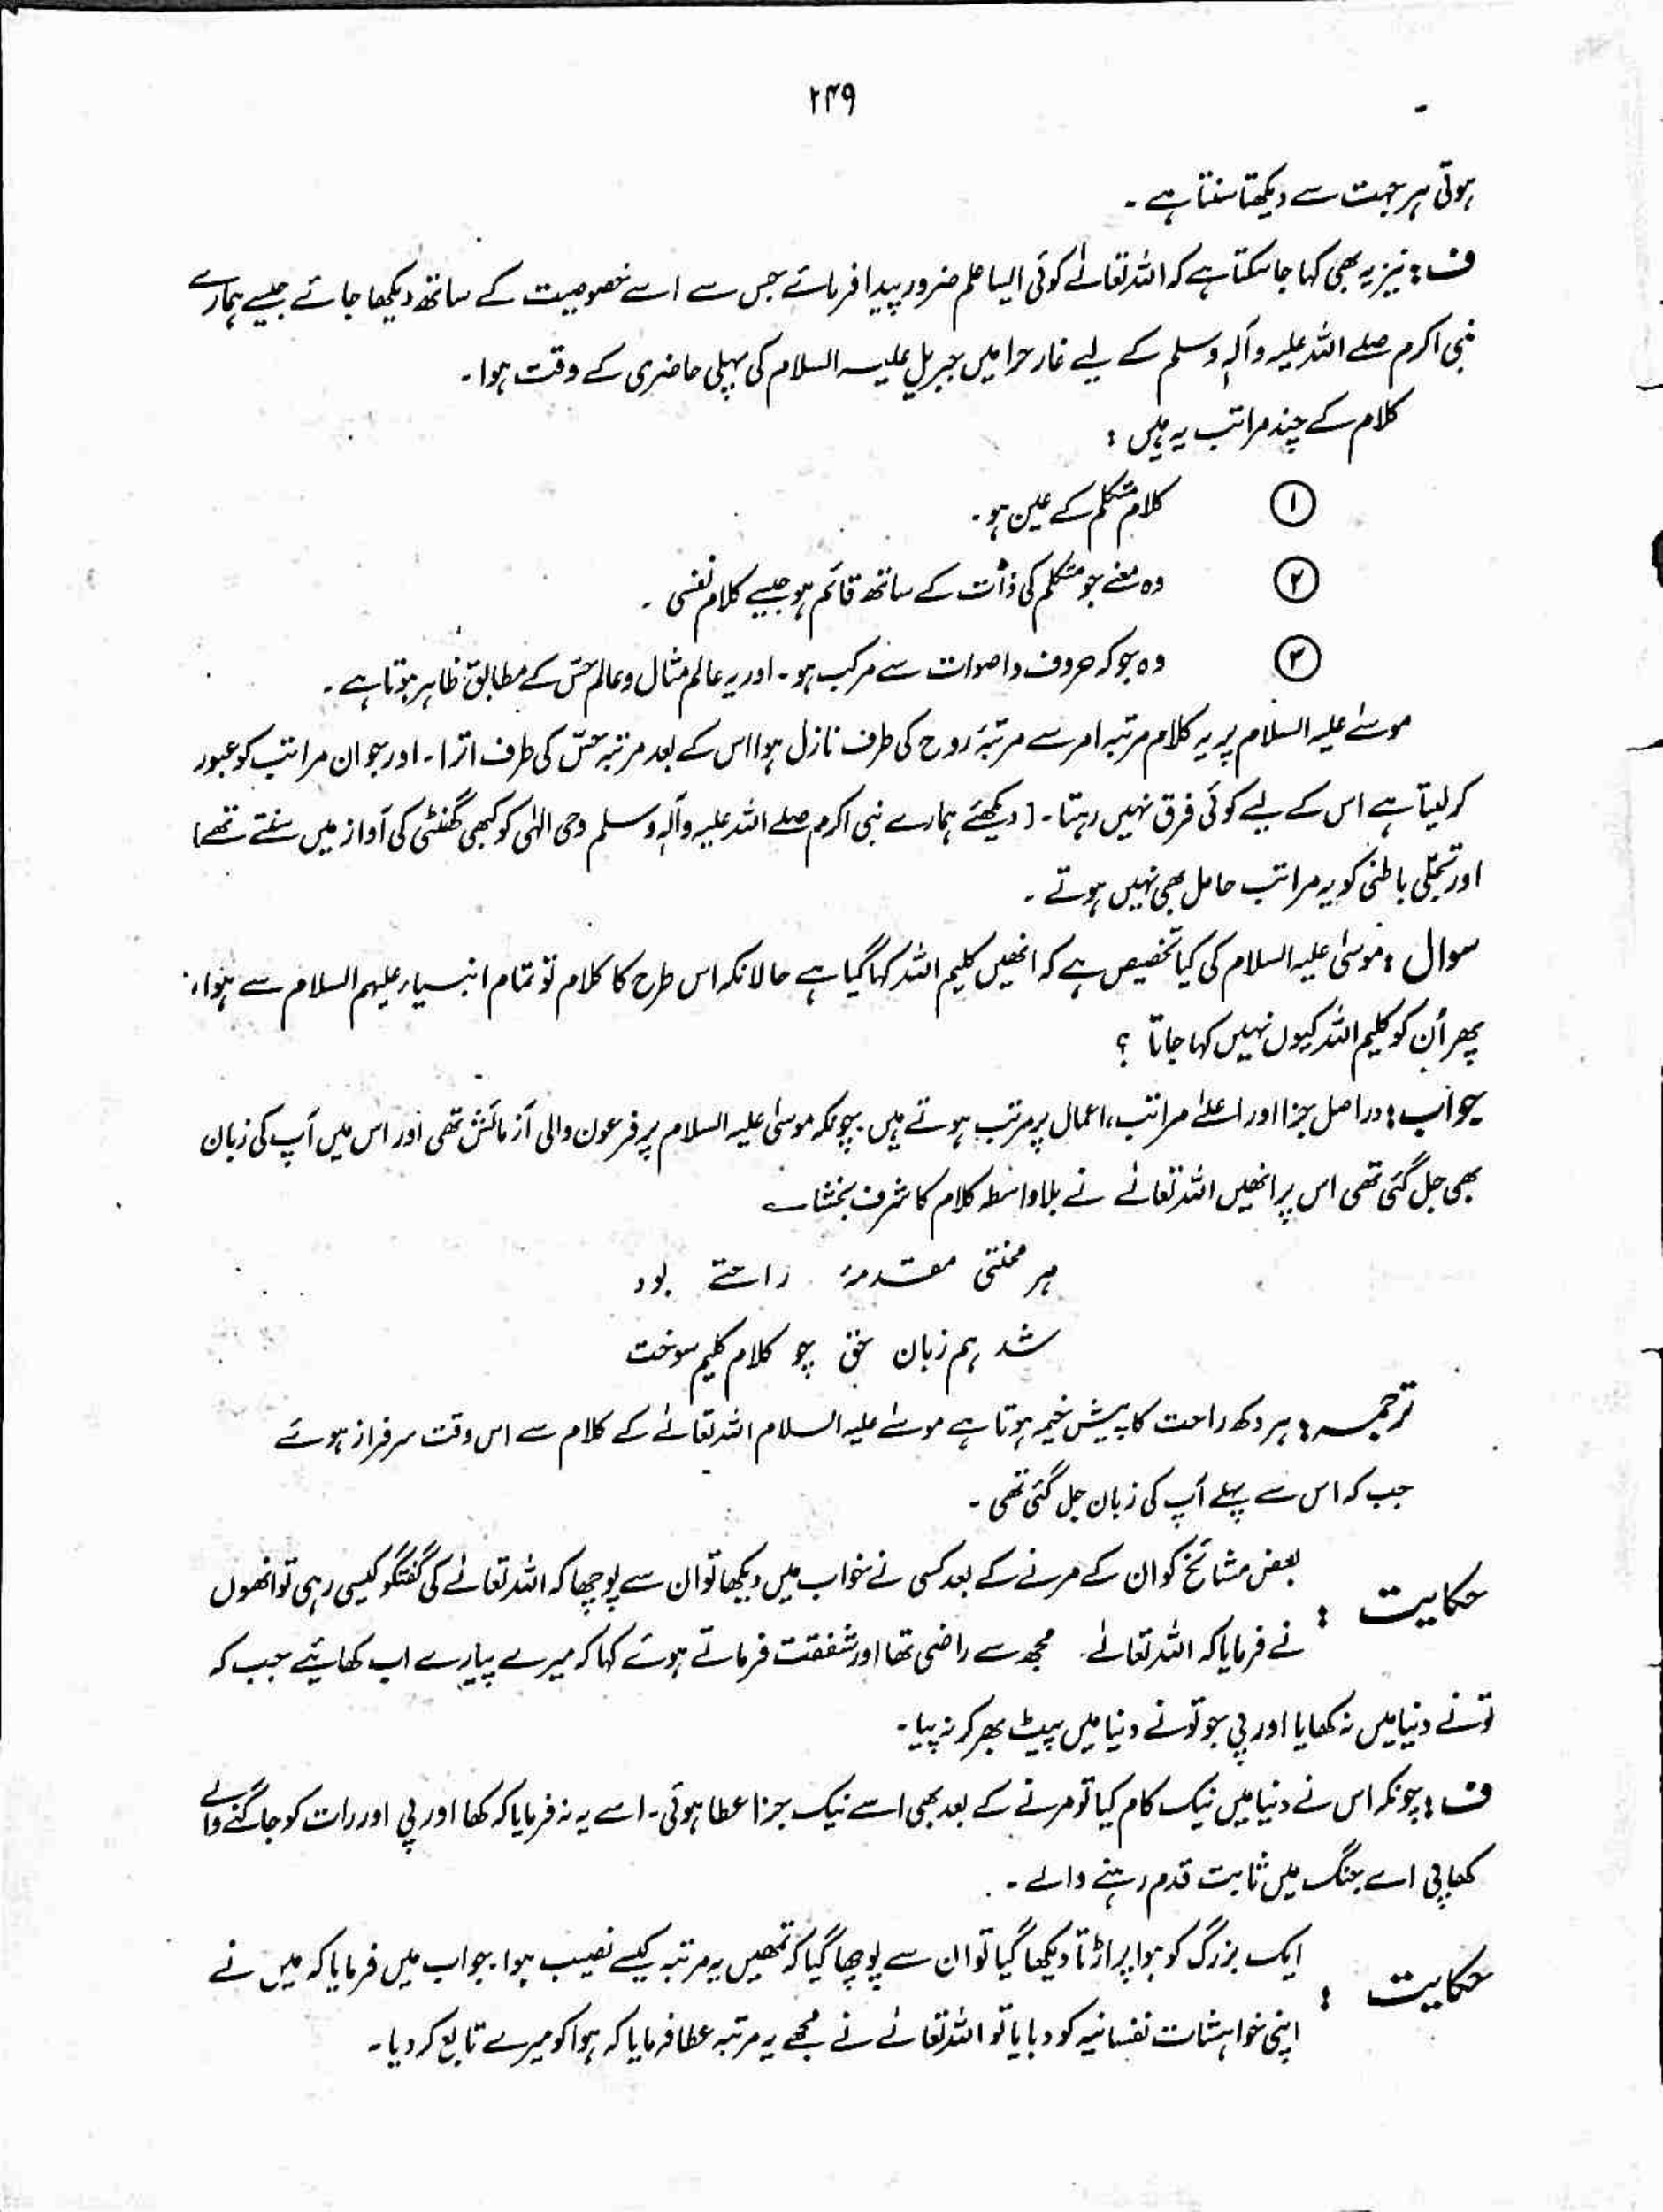 ۲۴۹
ہوتی ہر جہت سے دیکھتا سنتا ہے ۔
ف : نیز یہ بھی کہا جا سکتا ہے کہ اللہ تعالےٰ کوئی ایسا علم ضرور پیدا فرمائے جس سے اسے خصوصیت کے ساتھ دیکھا جائے جیسے ہمارے
نبی اکرم صلے اللہ علیہ وآلہٖ وسلم کے لیے غار حرا میں جبریل علیہ السلام کی پہلی حاضری کے وقت ہوا ۔
کلام کے چند مراتب یہ ہیں :
① کلام متکلم کے عین ہو ۔
② وہ معنے جو متکلم کی ذات کے ساتھ قائم ہو جیسے کلام نفسی ۔
③ وہ جو کہ حروف و اصوات سے مرکب ہو ۔ اور یہ عالم مثال و عالم حسّ کے مطابق ظاہر ہوتا ہے ۔
موسےٰ علیہ السلام پر یہ کلام مرتبہ امر سے مرتبۂ روح کی طرف نازل ہوا اس کے بعد مرتبہ حسّ کی طرف اترا ۔ اور جو ان مراتب کو عبور
کر لیتا ہے اس کے لیے کوئی فرق نہیں رہتا ۔ [ دیکھئے ہمارے نبی اکرم صلے اللہ علیہ وآلہٖ وسلم وحی الٰہی کو کبھی گھنٹی کی آواز میں سنتے تھے ]
اور تجلّی باطنی کو یہ مراتب حامل بھی نہیں ہوتے ۔
سوال : موسیٰ علیہ السلام کی کیا تخصیص ہے کہ انھیں کلیم اللہ کہا گیا ہے حالانکہ اس طرح کا کلام تو تمام انبیاء علیہم السلام سے ہوا ،
پھر اُن کو کلیم اللہ کیوں نہیں کہا جاتا ؟
جواب : دراصل جزا اور اعلےٰ مراتب ، اعمال پر مرتب ہوتے ہیں . چونکہ موسیٰ علیہ السلام پر فرعون والی آزمائش تھی اور اس میں آپ کی زبان
بھی جل گئی تھی اس پر انھیں اللہ تعالےٰ نے بلا واسطہ کلام کا شرف بخشا ـ
ہر محنتی مقدمۂ راحتے بود
شد ہم زبان حق چو کلام کلیم سوخت
ترجمہ : ہر دکھ راحت کا پیش خیمہ ہوتا ہے موسےٰ علیہ السلام اللہ تعالےٰ کے کلام سے اس وقت سرفراز ہوئے
جب کہ اس سے پہلے آپ کی زبان جل گئی تھی ۔
حکایت : بعض مشائخ کو ان کے مرنے کے بعد کسی نے خواب میں دیکھا تو ان سے پوچھا کہ اللہ تعالےٰ کی گفتگو کیسی رہی تو انھوں
نے فرمایا کہ اللہ تعالےٰ مجھ سے راضی تھا اور شفقت فرماتے ہوئے کہا کہ میرے پیارے اب کھائیے جب کہ
تو نے دنیا میں نہ کھایا اور پی جو تو نے دنیا میں پیٹ بھر کر نہ پیا ۔
ف : چونکہ اس نے دنیا میں نیک کام کیا تو مرنے کے بعد بھی اسے نیک جزا عطا ہوئی ۔ اسے یہ نہ فرمایا کہ کھا اور پی اور رات کو جاگنے والے
کھا پی اے جنگ میں ثابت قدم رہنے والے ۔
حکایت : ایک بزرگ کو ہوا پر اڑتا دیکھا گیا تو ان سے پوچھا گیا کہ تمھیں یہ مرتبہ کیسے نصیب ہوا . جواب میں فرمایا کہ میں نے
اپنی خواہشات نفسانیہ کو دبایا تو اللہ تعالےٰ نے مجھے یہ مرتبہ عطا فرمایا کہ ہوا کو میرے تابع کر دیا ۔